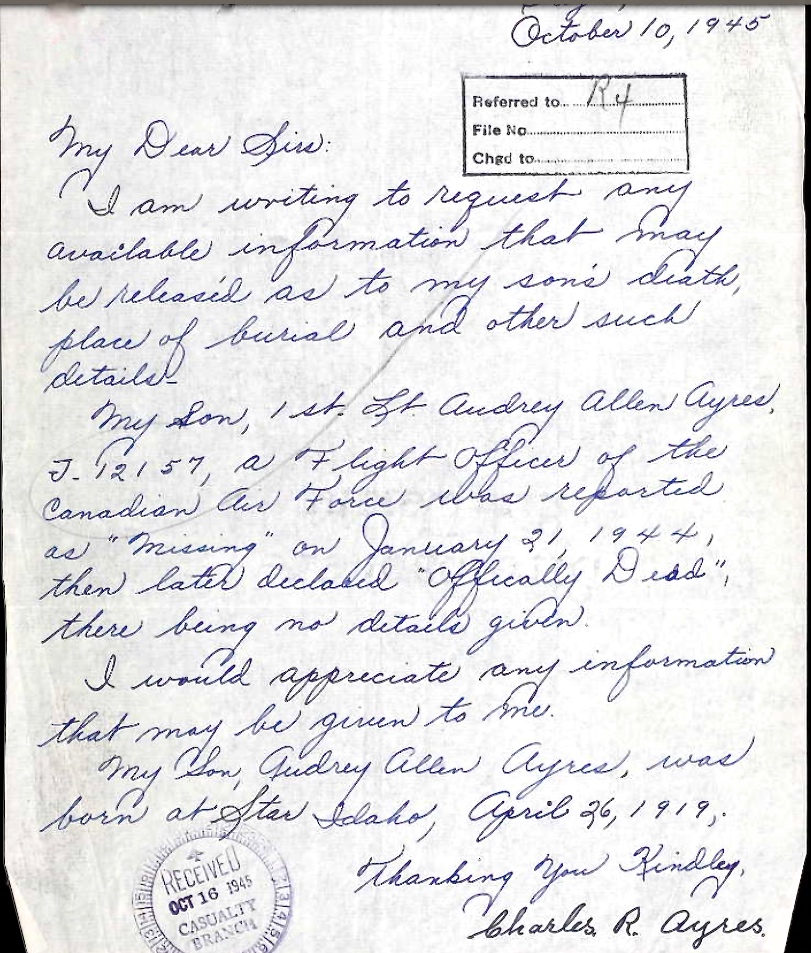 October 10, 1945
Referred to R4
File No
Chgd to
My Dear Sirs:
I am writing to request any
available information that may
be released as to my son's death,
place of burial and other such
details-
My Son, 1st. Lt. Audrey Allen Ayres,
J-12157, a Flight Officer of the
Canadian Air Force was reported
as "Missing" on January 21, 1944,
then later declared "Offically Dead",
there being no details given.
I would appreciate any information
that may be given to me.
My Son, Audrey Allen Ayres, was
born at Star Idaho, April 26, 1919,.
Thanking You Kindley,
Charles R. Ayres.
RECEIVED
OCT 16 1945
CASUALTY
BRANCH